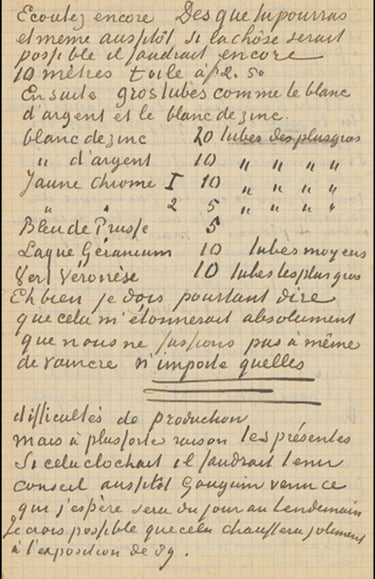 Ecoutez encore Dès que tu pourras
et même aussitôt si la chôse serait
possible il faudrait encore
10 mètres toile à fr 2.50
Ensuite gros tubes comme le blanc
d'argent et le blanc de zinc.
blanc de zinc 20 tubes des plus gros
" d'argent 10 " " " "
Jaune chrome I 10 " " " "
" " 2 5 " " " "
Bleu de Prusse 5
Laque Géranium 10 tubes moyens
Vert Véronèse 10 tubes les plus gros
Eh bien je dois pourtant dire
que cela m'étonnerait absolument
que nous ne fussions pas à même
de vaincre n'importe quelles
difficultés de production
mais à plus forte raison les présentes
Si cela clochait il faudrait tenir
conseil aussitôt Gauguin venu ce
qui j'espère sera du jour au lendemain
Je crois possible que cela chauffera joliment
à l'exposition de 89.